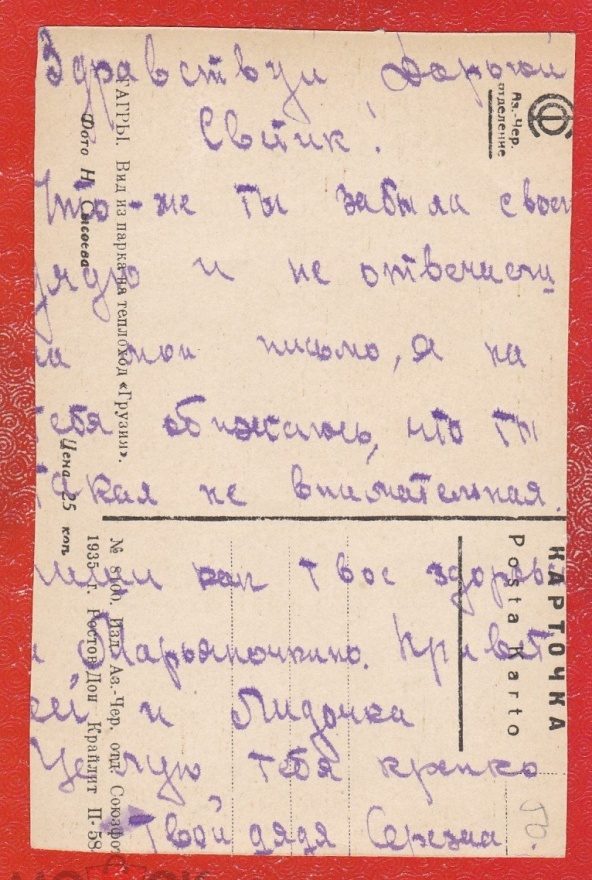 Здравствуй Дорогой
Светик!
Что-же ты забыла свое
дядю и не отвечаеш
на мои письмо, я на
тебя обижаюсь, что ты
такая не внимательная.
твое здоровь
и Марьяночкино. Привет
ей и Лидочка
Целую тебя крепко
Твой дядя Сережа.
ГАГРЫ. Вид из парка на теплоход «Грузия».
Фото Н. Сысоева
Цена 25 коп.
№ 8100. Изд. Аз.-Чер. отд. Союзфото
1935 г. Ростов Дон Крайлит П-58
Аз.-Чер.
отделение
СФ
КАРТОЧКА
Posta Karto
50